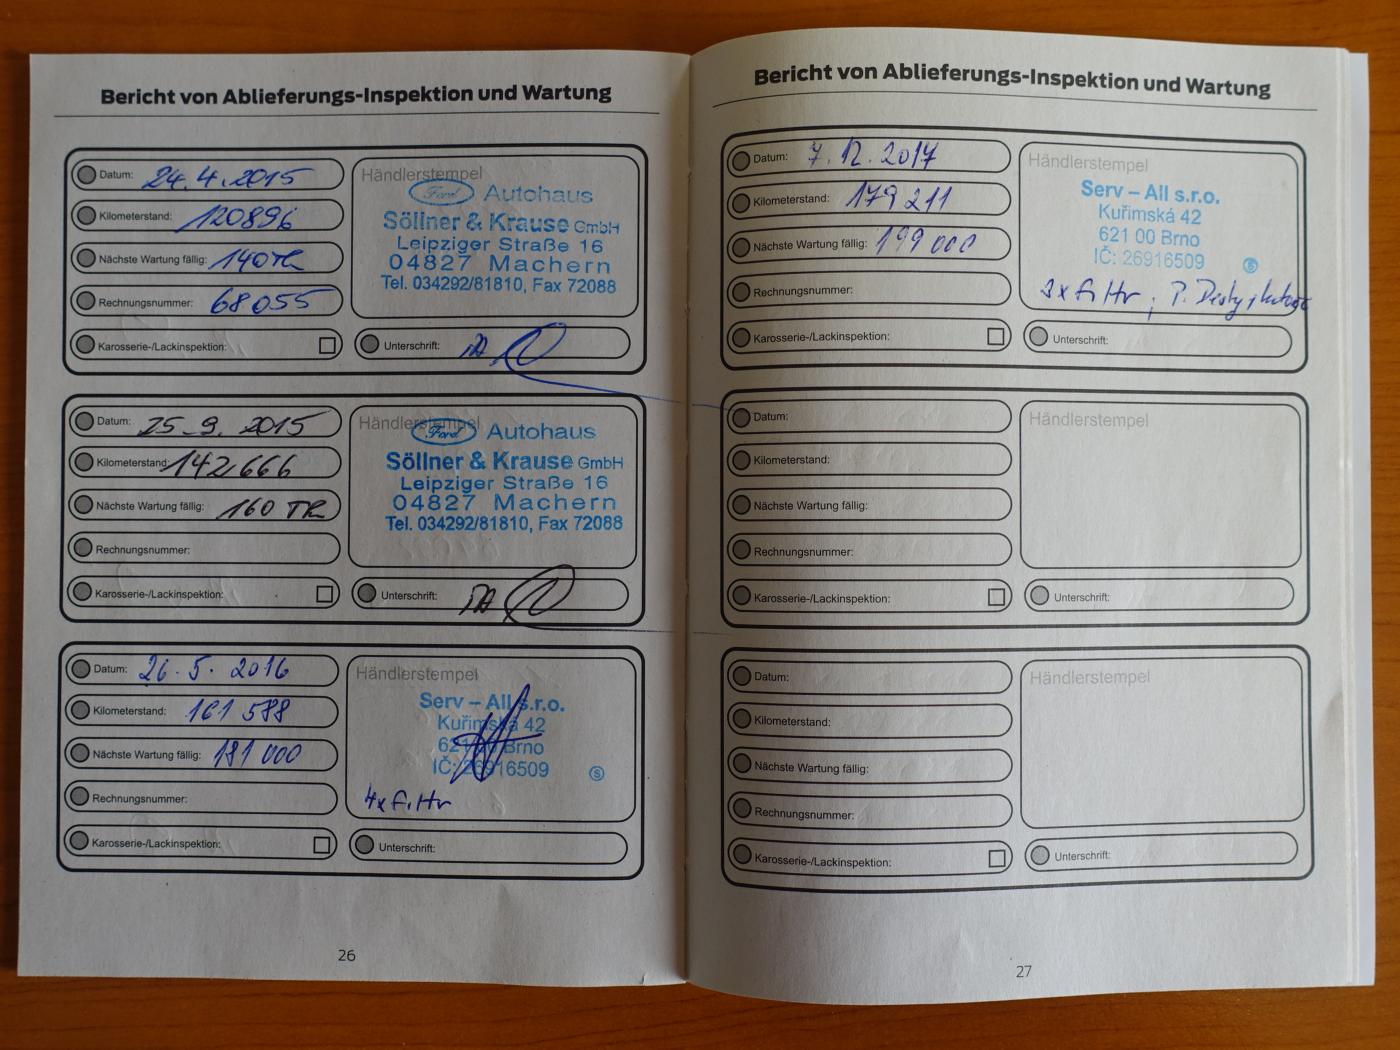 Bericht von Ablieferungs-Inspektion und Wartung
Datum: 24.4.2015
Kilometerstand: 120896
Nächste Wartung fällig: 140
Rechnungsnummer: 68055
Karosserie-/Lackinspektion:
Händlerstempel
Ford Autohaus
Söllner & Krause GmbH
Leipziger Straße 16
04827 Machern
Tel. 034292/81810, Fax 72088
Unterschrift:
Datum: 25.9.2015
Kilometerstand: 142666
Nächste Wartung fällig: 160
Rechnungsnummer:
Karosserie-/Lackinspektion:
Händlerstempel
Ford Autohaus
Söllner & Krause GmbH
Leipziger Straße 16
04827 Machern
Tel. 034292/81810, Fax 72088
Unterschrift:
Datum: 26.5.2016
Kilometerstand: 161 588
Nächste Wartung fällig: 181 000
Rechnungsnummer:
Karosserie-/Lackinspektion:
Händlerstempel
Serv – All s.r.o.
Kuřimská 42
621 00 Brno
IČ: 26916509
4x filtr
Unterschrift:
26
Bericht von Ablieferungs-Inspektion und Wartung
Datum: 7.12.2017
Kilometerstand: 179 211
Nächste Wartung fällig: 199 000
Rechnungsnummer:
Karosserie-/Lackinspektion:
Händlerstempel
Serv – All s.r.o.
Kuřimská 42
621 00 Brno
IČ: 26916509
filtr
Unterschrift:
Datum:
Kilometerstand:
Nächste Wartung fällig:
Rechnungsnummer:
Karosserie-/Lackinspektion:
Händlerstempel
Unterschrift:
Datum:
Kilometerstand:
Nächste Wartung fällig:
Rechnungsnummer:
Karosserie-/Lackinspektion:
Händlerstempel
Unterschrift:
27